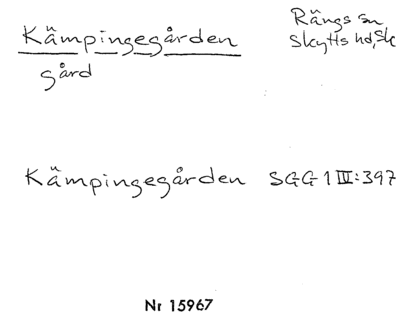 Kämpingegården
gård
Rängs sn
Skytts hd, Sk
Kämpingegården SGG 1 IV:397
Nr 15967